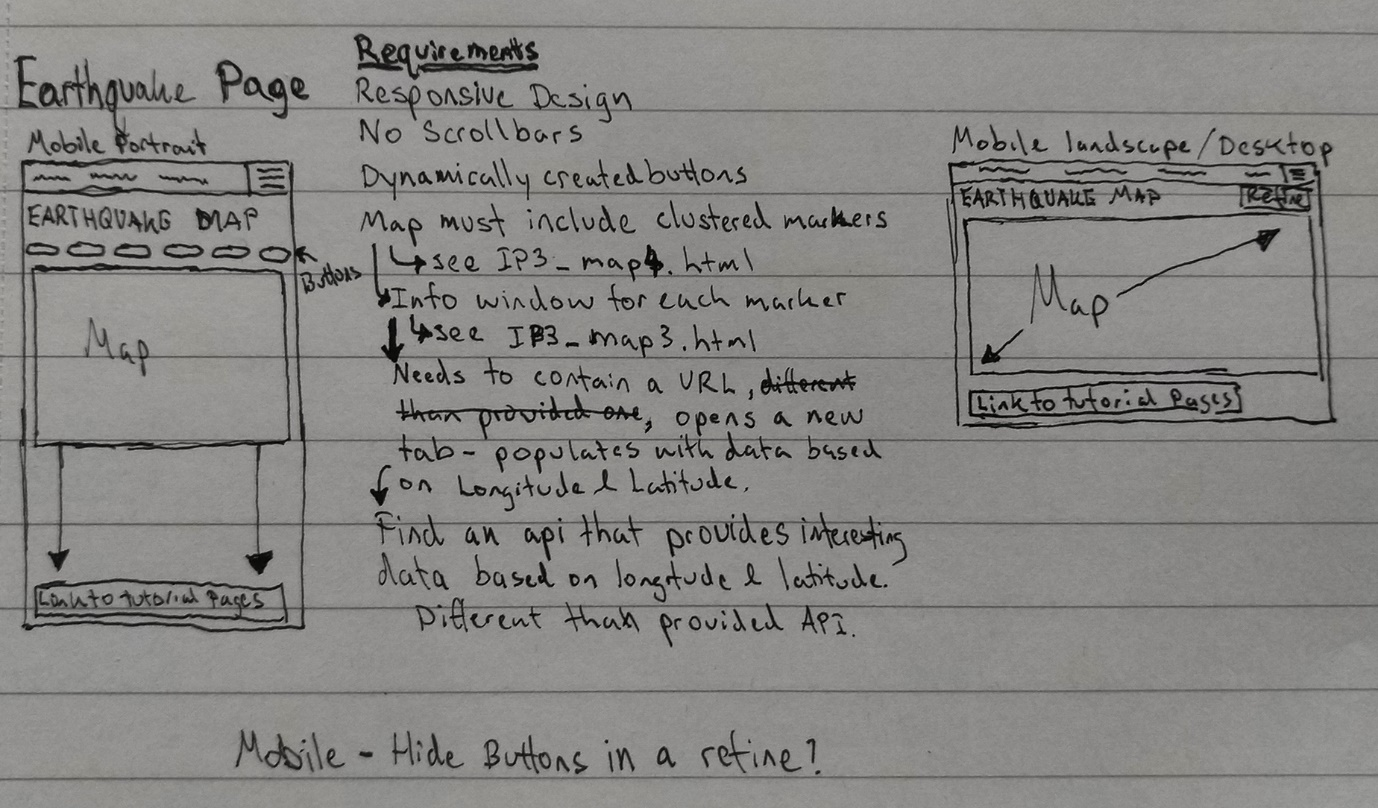 Earthquake Page
Mobile Portrait
EARTHQUAKE MAP
Buttons
Map
Link to tutorial Pages
Requirements
Responsive Design
No Scrollbars
Dynamically created buttons
Map must include clustered markers
see IP3_map4.html
Info window for each marker
see IP3_map3.html
Needs to contain a URL, different
than provided one, opens a new
tab - populates with data based
on Longitude & Latitude.
Find an api that provides interesting
data based on longitude & latitude.
Different than provided API.
Mobile landscape/Desktop
EARTHQUAKE MAP Refine
Map
Link to tutorial Pages
Mobile - Hide Buttons in a refine?